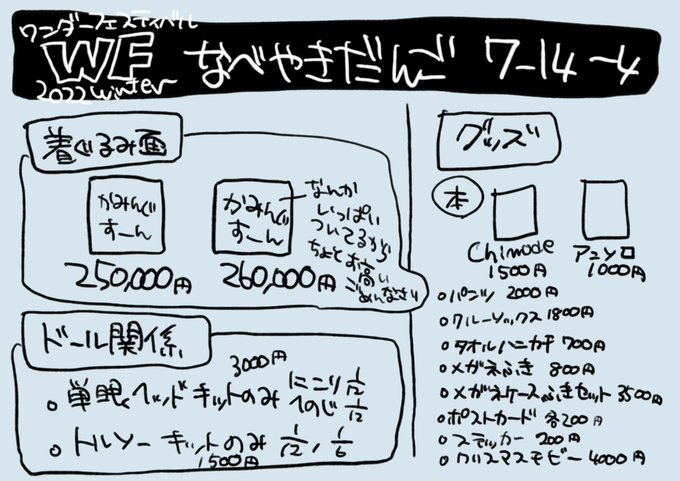 ワンダーフェスティバル
WF
2022 winter
なべやきだんご 7-14-4
着ぐるみ面
かみんぐ
すーん
250,000円
かみんぐ
すーん
260,000円
なんか
いっぱい
ついてるから
ちょとお高い
ごめんなさい
ドール関係
3000円
単眼ヘッド キットのみ にこり 1/12
への字 1/12
トルソー キットのみ 1/12, 1/6
1500円
グッズ
本
Chimode
1500円
アユソロ
1000円
パンツ 2000円
クルーソックス 1800円
タオルハンカチ 700円
メガネふき 800円
メガネケースふきセット 3500円
ポストカード 各200円
ステッカー 200円
クリスマスモビー 4000円